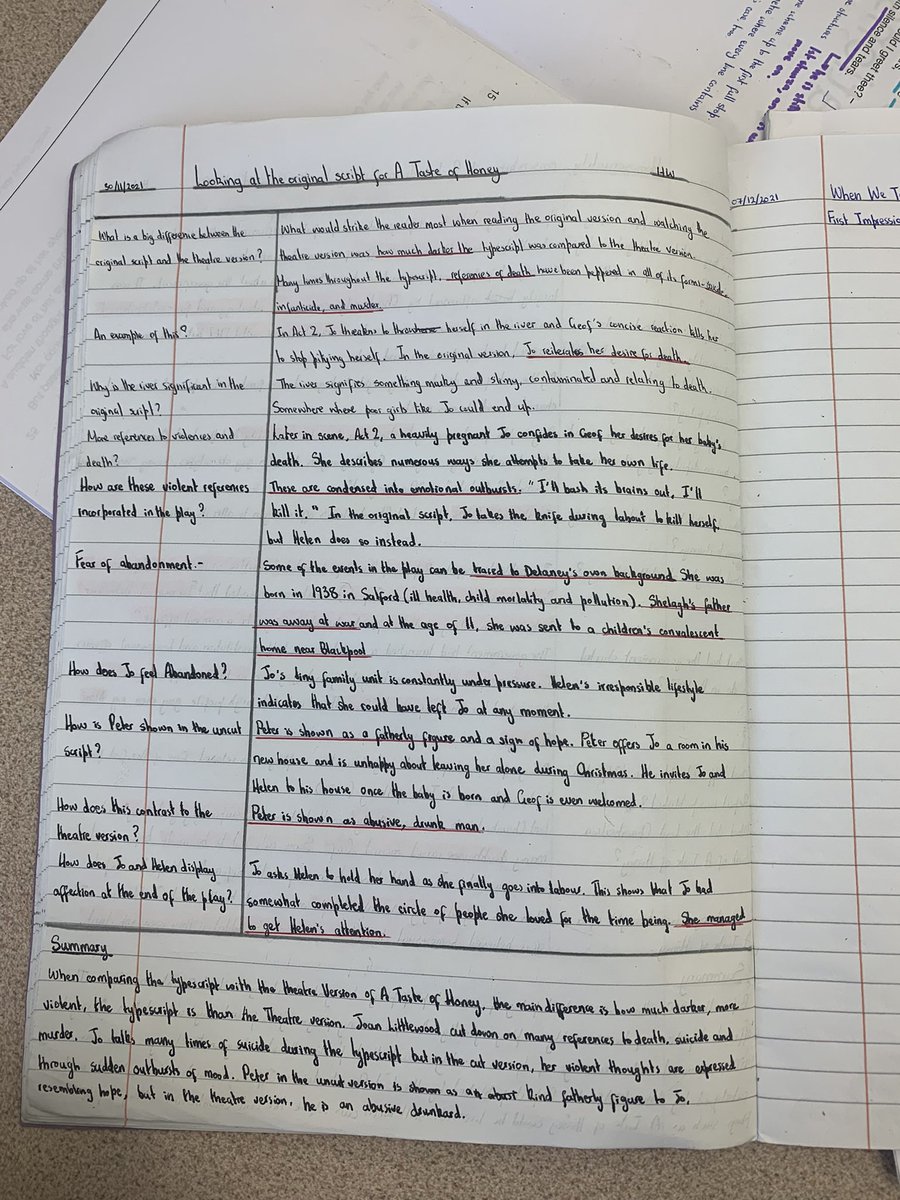 15
silence and tears.
ould I greet thee? –
move on.
30/11/2021 Looking at the original script for A Taste of Honey HW
What is a big difference between the
original script and the theatre version?
What would strike the reader most when reading the original version and watching the
theatre version was how much darker the typescript was compared to the theatre version.
Many times throughout the typscript, references of death have been peppered in all of its forms - suicide,
infanticide, and murder.
An example of this?
In Act 2, Jo theatens to throw herself in the river and Geof's concise reaction tells her
to stop pitying herself. In the original version, Jo reiterates her desire for death.
Why is the river significant in the
original script?
The river signifies something murky and slimy, contaminated and relating to death.
Somewhere where poor girls like Jo could end up.
More references to violences and
death?
Later in scene, Act 2, a heavily pregnant Jo confides in Geof her desires for her baby's
death. She describes numerous ways she attempts to take her own life.
How are these violent references
incorporated in the play?
These are condensed into emotional outbursts. "I'll bash its brains out, I'll
kill it." In the original script, Jo takes the knife during labour to kill herself
but Helen does so instead.
Fear of abandonment.-
Some of the events in the play can be traced to Delaney's own background She was
born in 1938 in Salford (ill health, child mortality and pollution). Shelagh's father
was away at war and at the age of 11, she was sent to a children's convalescent
home near Blackpool
How does Jo feel Abandoned?
Jo's tiny family unit is constantly under pressure. Helen's irresponsible lifestyle
indicates that she could have left Jo at any moment.
How is Peter shown in the uncut
script?
Peter is shown as a fatherly figure and a sign of hope. Peter offers Jo a room in his
new house and is unhappy about leaving her alone during Christmas. He invites Jo and
Helen to his house once the baby is born and Geof is even welcomed.
How does this contrast to the
theatre version?
Peter is shown as abusive, drunk man.
How does Jo and Helen display
affection at the end of the play?
Jo asks Helen to hold her hand as she finally goes into labour. This shows that Jo had
somewhat completed the circle of people she loved for the time being. She managed
to get Helen's attention.
Summary
When comparing the typescript with the theatre version of A Taste of Honey, the main difference is how much darker, more
violent, the typescript is than the Theatre version. Joan Littlewood cut down on many references to death, suicide and
murder. Jo talks many times of suicide during the typescript but in the cut version, her violent thoughts are expressed
through sudden outbursts of mood. Peter in the uncut version is shown as a kind fatherly figure to Jo,
resembling hope, but in the theatre version, he is an abusive drunkard.
07/12/2021 When We T
First Impressio